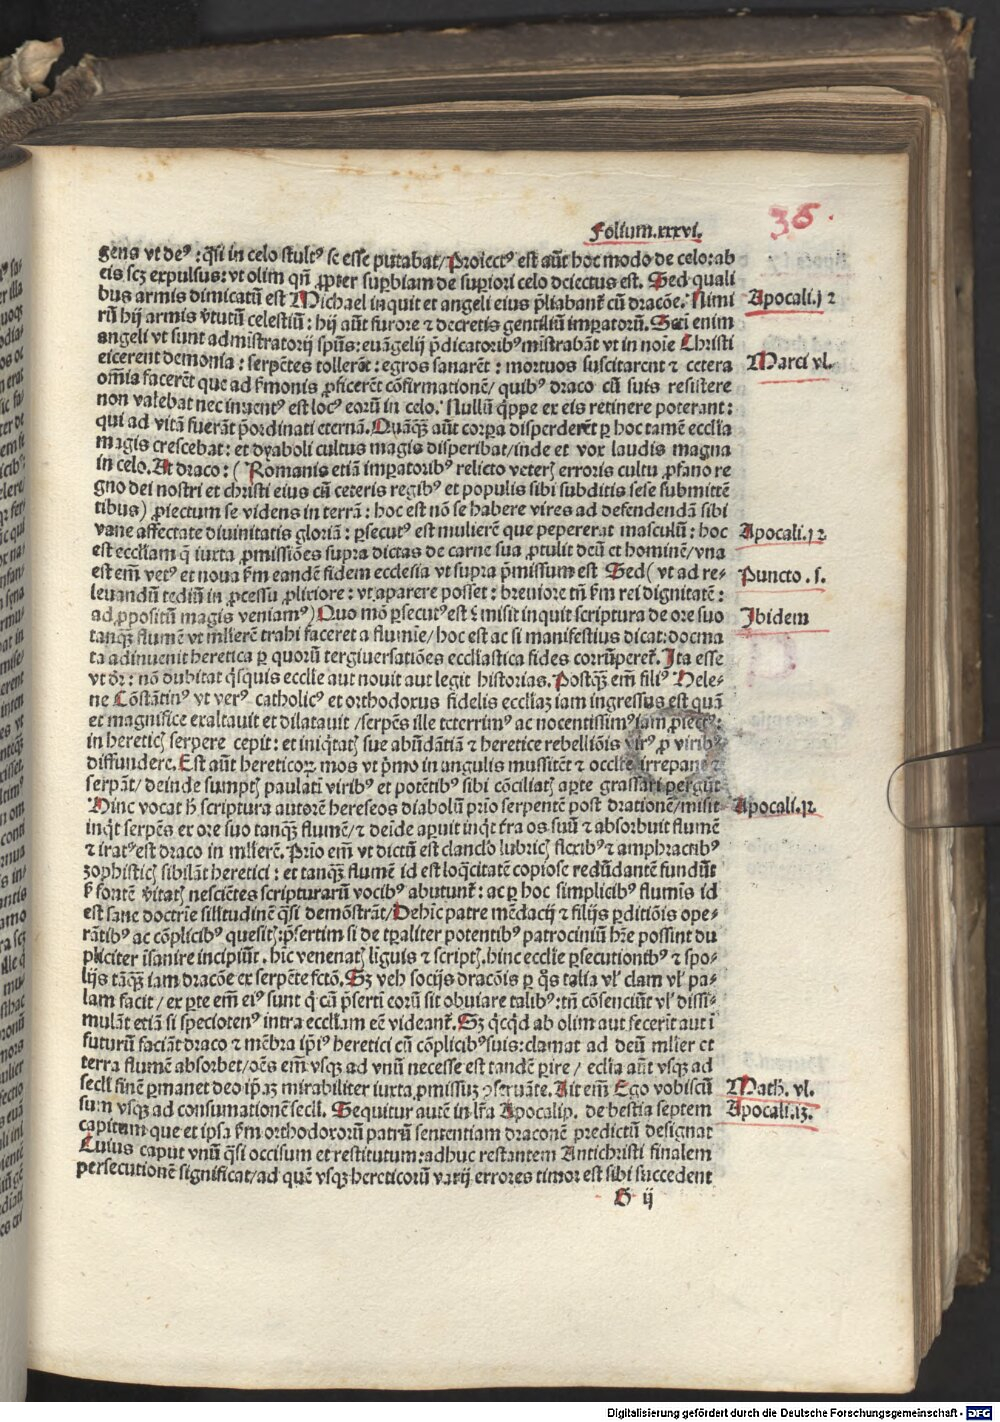 36.
Folium.xxxvi.
gena vt de⁹ : q̄si in celo stult⁹ se esse putabat/ Proiect⁹ est aūt hoc modo de celo: ab
eis scꝫ expulsus: vt olim qn̄ ꝓpter suꝑbiam de suꝑiori celo deiectus est. Sed quali
bus armis dimicatū est Michael inquit et angeli eius p̄liabant̄ cū dracōe. Nimi
rū hij armis v̄tutū celestiū: hij aūt furore ⁊ decretis gentiliū imꝑatorū. Scī enim
angeli vt sunt admistratorij spūs: euāgelij p̄dicatorib⁹ mīstrabāt vt in noīe Christi
eicerent demonia: serpētes tollerēt: egros sanarēt: mortuos suscitarent ⁊ cetera
om̄ia facerēt que ad ẜmonis ꝓficerēt cōfirmationē/ quib⁹ draco cū suis resistere
non valebat nec inuent⁹ est loc⁹ eorū in celo. Nullū q̄ppe ex eis retinere poterant:
qui ad vitā fuerāt p̄ordinati eternā. Quāqꝫ aūt corꝑa disperderēt ꝑ hoc tamē eccl̄ia
magis crescebat: et dyaboli cultus magis disperibat/ inde et vox laudis magna
in celo. At draco: ( Romanis etiā imꝑatorib⁹ relicto veteris erroris cultu ꝓfano re
gno dei nostri et christi eius cū ceteris regib⁹ et populis sibi subditis sese submittē
tibus) ꝓiectum se videns in terrā: hoc est nō se habere vires ad defendendā sibi
vane affectate diuinitatis gloriā: ꝑsecut⁹ est mulierē que pepererat masculū: hoc
est eccl̄iam q̄ iuxta ꝓmissiōes supra dictas de carne sua ꝓtulit deū et hominē/ vna
est em̄ vet⁹ et noua ẜm eandē fidem ecclesia vt supra p̄missum est Sed ( vt ad re-
leuandū tediū in ꝓcessu ꝓlixiore: vt aparere posset: breuiore tn̄ ẜm rei dignitatē:
ad ꝓpositū magis veniam⁹) Quo mō ꝑsecut⁹ est misit inquit scriptura de ore suo
tanqꝫ flumē vt mlierē trahi faceret a flumīe/ hoc est ac si manifestius dicat: docma
ta adinuenit heretica ꝑ quorū tergiuersatiōes eccl̄iastica fides corrūperet̄. Ita esse
vt dr̄: nō dubitat q̄squis ecclīe aut nouit aut legit historias. Postqꝫ em̄ fili⁹ Hele-
ne Cōstātin⁹ vt ver⁹ catholic⁹ et orthodoxus fidelis eccl̄iaꝫ iam ingressus est quā
et magnifice exaltauit et dilatauit /serpēs ille teterrim⁹ ac nocentissim⁹ iam
in hereticis serpere cepit: et iniq̄tatis sue abūdātiā ⁊ heretice rebelliōis
diffundere. Est aūt hereticoꝝ mos vt p̄mo in angulis mussitēt ⁊ occlte irrepant ⁊
serpāt/ deinde sumptis paulatī virib⁹ et potētib⁹ sibi cōciliatis aꝑte grassari pergūt
Hinc vocat h̄ scriptura autorē hereseos diabolū prīo serpentē post drationē/ misit
inq̄t serpēs ex ore suo tanqꝫ flumē/ ⁊ deīde aꝑuit inq̄t t̄ra os suū ⁊ absorbuit flumē
⁊ irat⁹ est draco in mlierē. Prīo em̄ vt dictū est clanclo lubricis flexib⁹ ⁊ amphractib⁹
zophisticis sibilāt heretici: et tanqꝫ flumē id est loq̄citatē copiose redūdantē fundūt
ẜ fontē v̄itatis nesciētes scripturarū vocib⁹ abutunt̄: ac ꝑ hoc simplicib⁹ flumīs id
est sane doctrīe sil̄itudinē q̄si demōstrāt/ Dehīc patre mēdacij ⁊ filijs ꝑditiōis ope-
rātib⁹ ac cōplicib⁹ quesitis: p̄sertim si de tꝑaliter potentib⁹ patrociniū hr̄e possint du
pliciter īsanire incipiūt. hīc venenatis liguis ⁊ scriptis. hinc ecclīe ꝑsecutionib⁹ ⁊ spo-
lijs tāqꝫ iam dracōe ex serpēte fctō. Sꝫ veh socijs dracōis ꝑ q̄s talia vl̄ clam vl̄ pa-
lam facit/ ex ꝑte em̄ ei⁹ sunt q̄ cū p̄sertī eorū sit obuiare talib⁹: tn̄ cōsenciūt vl̄ dissi-
mulāt etiā si specioten⁹ intra eccl̄iam eē videant̄. Sꝫ q̄cq̄d ab olim aut fecerīt aut ī
futurū faciāt draco ⁊ mēbra ip̄i⁹ heretici cū cōplicib⁹ suis: clamat ad deū mlier et
terra flumē absorbet/ oēs em̄ vsqꝫ ad vnū necesse est tandē ꝑire/ eclīa aūt vsqꝫ ad
secl̄i finē ꝑmanet deo ip̄aꝫ mirabiliter iuxta ꝓmissuꝫ ꝯseruāte. Ait em̄ Ego vobiscū
sum vsqꝫ ad consumationē secl̄i. Sequitur autē in lr̄a Apocalip. de bestia septem
capitum que et ipsa ẜm orthodoxorū patrū sententiam draconē predictū designat
Cuius caput vnū q̄si occisum et restitutum: adhuc restantem Antichristi finalem
persecutionē significat/ ad quē vsqꝫ hereticorū varij errores timor est sibi succedent
G ij
Apocali.12
Marci vl.
Apocali.12
Puncto .s.
Ibidem
Apocali.12.
Math. vl.
Apocali.13.
Digitalisierung gefördert durch die Deutsche Forschungsgemeinschaft - DFG